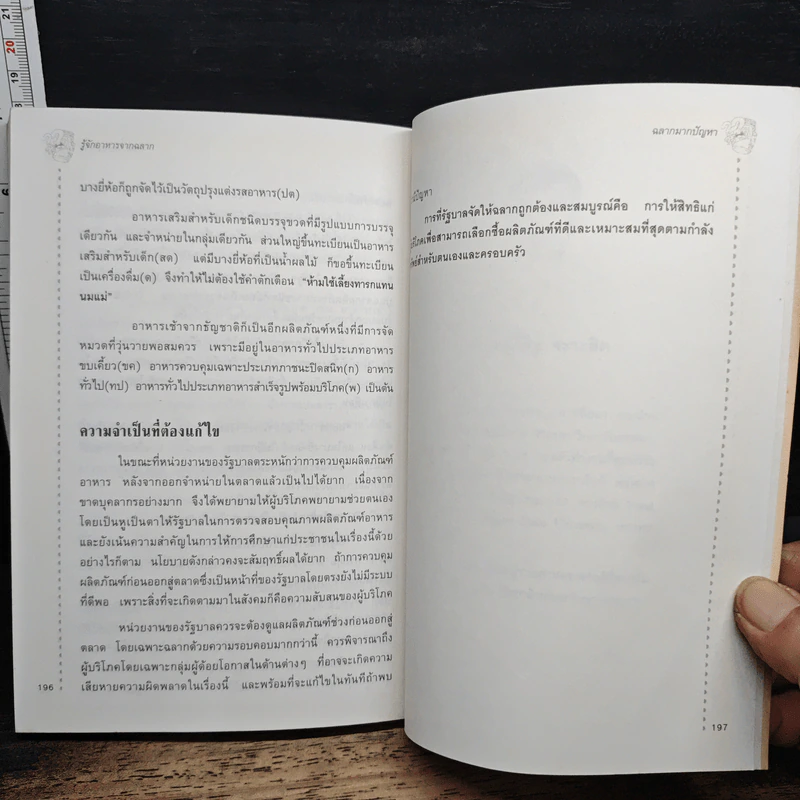 21
20
19
18
รู้จักอาหารจากฉลาก
บางยี่ห้อก็ถูกจัดไว้เป็นวัตถุปรุงแต่งรสอาหาร(ปต)
อาหารเสริมสำหรับเด็กชนิดบรรจุขวดที่มีรูปแบบการบรรจุ
เดียวกัน และจำหน่ายในกลุ่มเดียวกัน ส่วนใหญ่ขึ้นทะเบียนเป็นอาหาร
เสริมสำหรับเด็ก(สด) แต่มีบางยี่ห้อที่เป็นน้ำผลไม้ ก็ขอขึ้นทะเบียน
เป็นเครื่องดื่ม(ด) จึงทำให้ไม่ต้องใช้คำตักเตือน "ห้ามใช้เลี้ยงทารกแทน
นมแม่"
อาหารเช้าจากธัญชาติก็เป็นอีกผลิตภัณฑ์หนึ่งที่มีการจัด
หมวดที่วุ่นวายพอสมควร เพราะมีอยู่ในอาหารทั่วไปประเภทอาหาร
ขบเคี้ยว(ขค) อาหารควบคุมเฉพาะประเภทภาชนะปิดสนิท(ก) อาหาร
ทั่วไป(ทป) อาหารทั่วไปประเภทอาหารสำเร็จรูปพร้อมบริโภค(พ) เป็นต้น
ความจำเป็นที่ต้องแก้ไข
ในขณะที่หน่วยงานของรัฐบาลตระหนักว่าการควบคุมผลิตภัณฑ์
อาหาร หลังจากออกจำหน่ายในตลาดแล้วเป็นไปได้ยาก เนื่องจาก
ขาดบุคลากรอย่างมาก จึงได้พยายามให้ผู้บริโภคพยายามช่วยตนเอง
โดยเป็นหูเป็นตาให้รัฐบาลในการตรวจสอบคุณภาพผลิตภัณฑ์อาหาร
และยังเน้นความสำคัญในการให้การศึกษาแก่ประชาชนในเรื่องนี้ด้วย
อย่างไรก็ตาม นโยบายดังกล่าวคงจะสัมฤทธิ์ผลได้ยาก ถ้าการควบคุม
ผลิตภัณฑ์ก่อนออกสู่ตลาดซึ่งเป็นหน้าที่ของรัฐบาลโดยตรงยังไม่มีระบบ
ที่ดีพอ เพราะสิ่งที่จะเกิดตามมาในสังคมก็คือความสับสนของผู้บริโภค
หน่วยงานของรัฐบาลควรจะต้องดูแลผลิตภัณฑ์ช่วงก่อนออกสู่
ตลาด โดยเฉพาะฉลากด้วยความรอบคอบมากกว่านี้ ควรพิจารณาถึง
ผู้บริโภคโดยเฉพาะกลุ่มผู้ด้อยโอกาสในด้านต่างๆ ที่อาจจะเกิดความ
เสียหายความผิดพลาดในเรื่องนี้ และพร้อมที่จะแก้ไขในทันทีถ้าพบ
196
ฉลากมากปัญหา
ปัญหา
การที่รัฐบาลจัดให้ฉลากถูกต้องและสมบูรณ์คือ การให้สิทธิแก่
ริโภคเพื่อสามารถเลือกซื้อผลิตภัณฑ์ที่ดีและเหมาะสมที่สุดตามกำลัง
สำหรับตนเองและครอบครัว
197